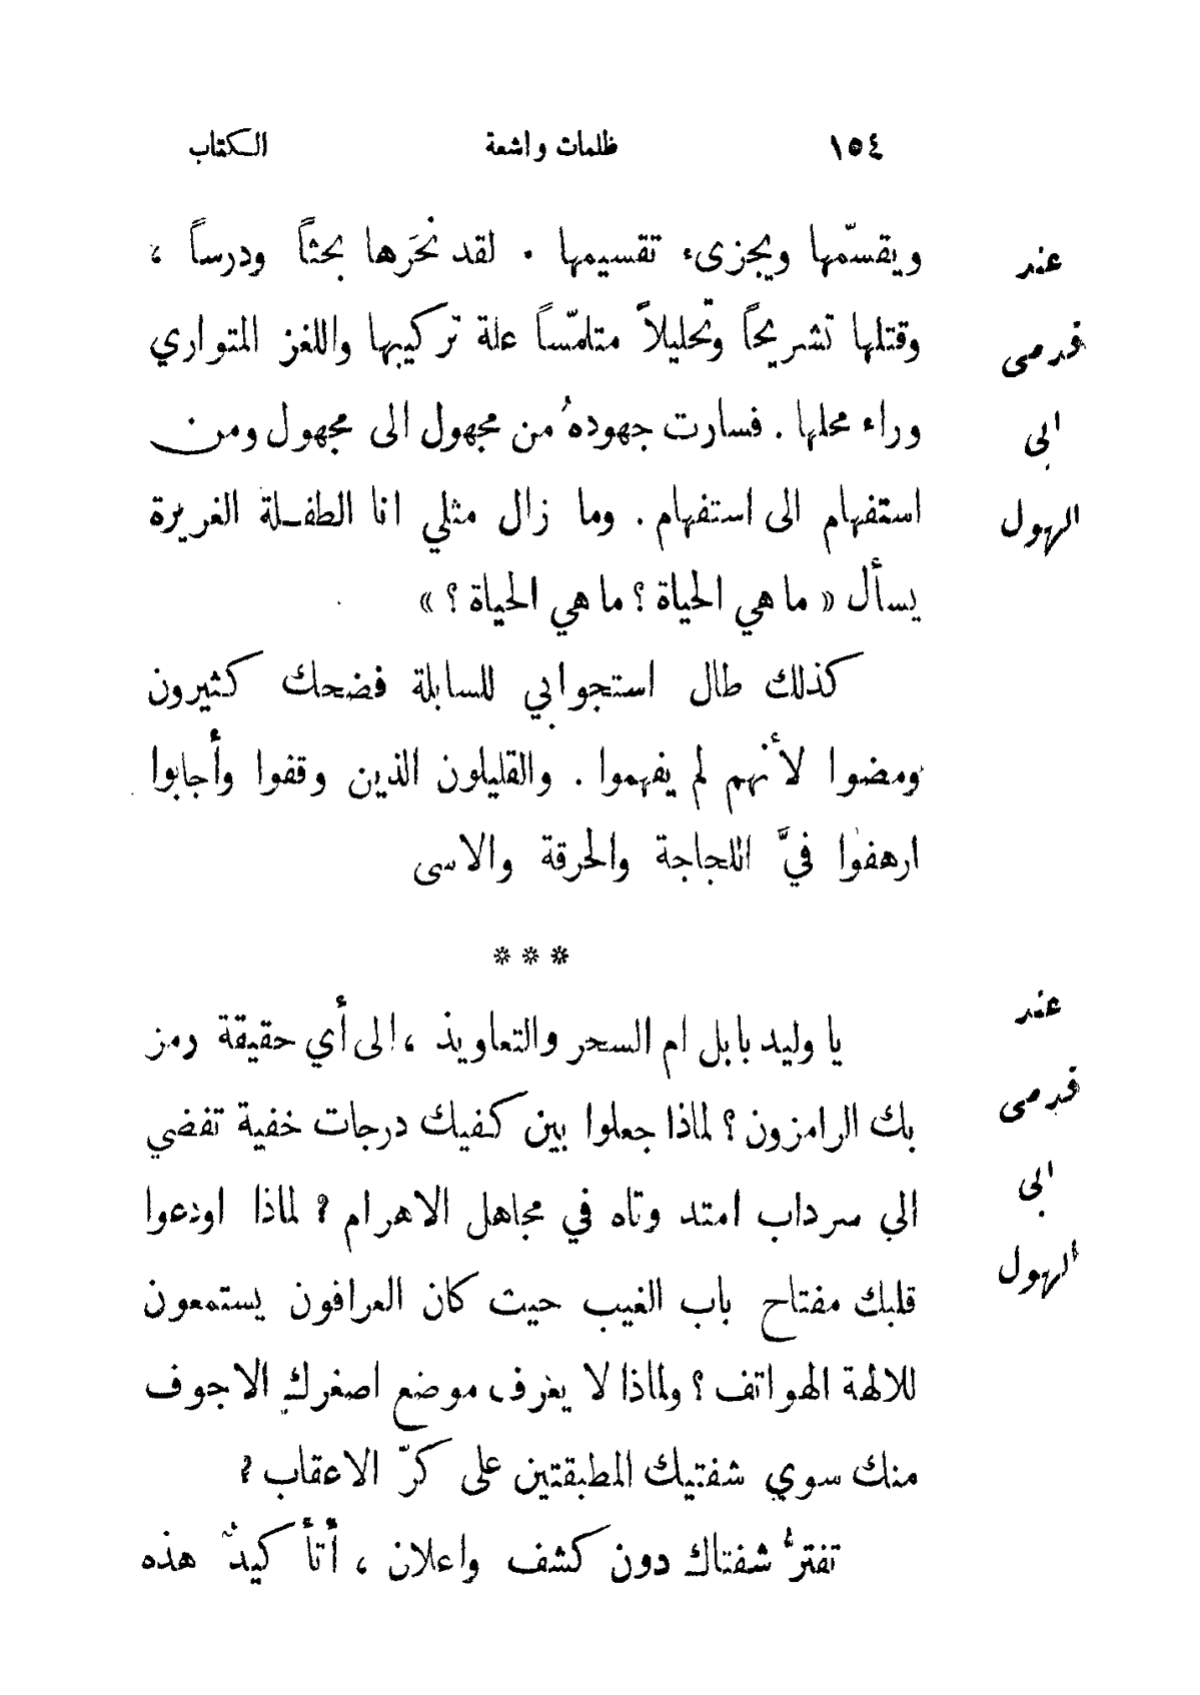 ١٥٤ ظلمات واشعة الكتاب
ويقسّمها ويجزىء تقسيمها . لقد نخَرها بحثاً ودرساً ،
وقتلها تشريحاً وتحليلاً متلمّساً علة تركيبها واللغز المتواري
وراء محلها . فسارت جهودهُ من مجهول الى مجهول ومن
استفهام الى استفهام . وما زال مثلي انا الطفلة الغريرة
يسأل « ما هي الحياة ؟ ما هي الحياة ؟ »
كذلك طال استجوابي للسابلة فضحك كثيرون
ومضوا لأنهم لم يفهموا . والقليلون الذين وقفوا وأجابوا
ارهفوا فيَّ اللجاجة والحرقة والاسى
عند
قدمى
ابي
الهول
***
يا وليد بابل ام السحر والتعاويذ ، الى أي حقيقة رمز
بك الرامزون ؟ لماذا جعلوا بين كفيك درجات خفية تفضي
الي سرداب امتد وتاه في مجاهل الاهرام ؟ لماذا اودعوا
قلبك مفتاح باب الغيب حيث كان العرافون يستمعون
للالهة الهواتف ؟ ولماذا لا يعرف موضع اصغرك الاجوف
منك سوي شفتيك المطبقتين على كرّ الاعقاب ؟
تفترُّ شفتاك دون كشف واعلان ، أتأكيدٌ هذه
عند
قدمى
ابي
الهول